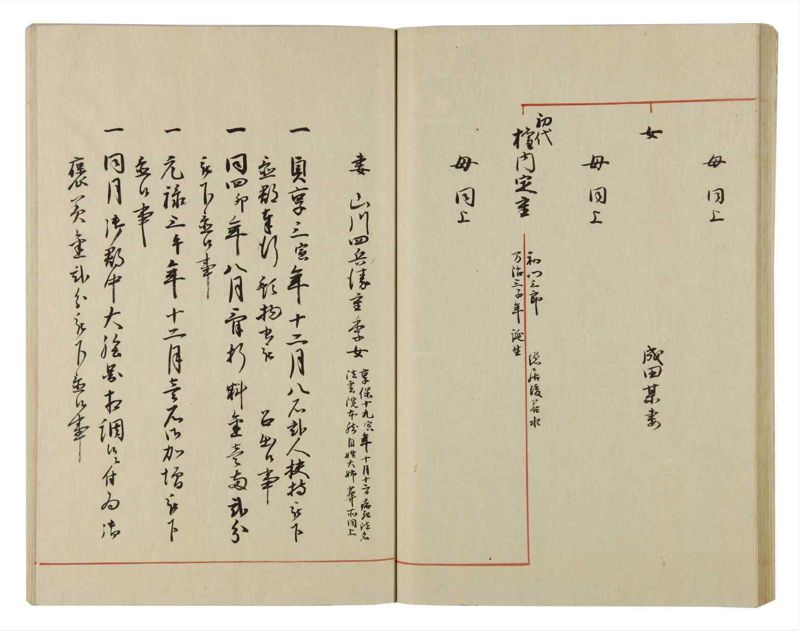 母同上
女
成田某妻
母同上
初代
桧内定重
初八三郎 隠居後若水
万治三子年誕生
母同上
妻 山川四兵衛重季女
享保十九寅年十月十二日病死法名
法雲院本 自性大姉葬所同上
一 貞享三寅年十二月八石弐人扶持被下
御郡奉行 物書被 召出候事
一 同四卯年八月 料金壱両弐分
被下置候事
一 元禄三午年十二月壱石御加増被下
置候事
一 同月御郡中大絵図相調 付為御
褒美金弐分被下置候事